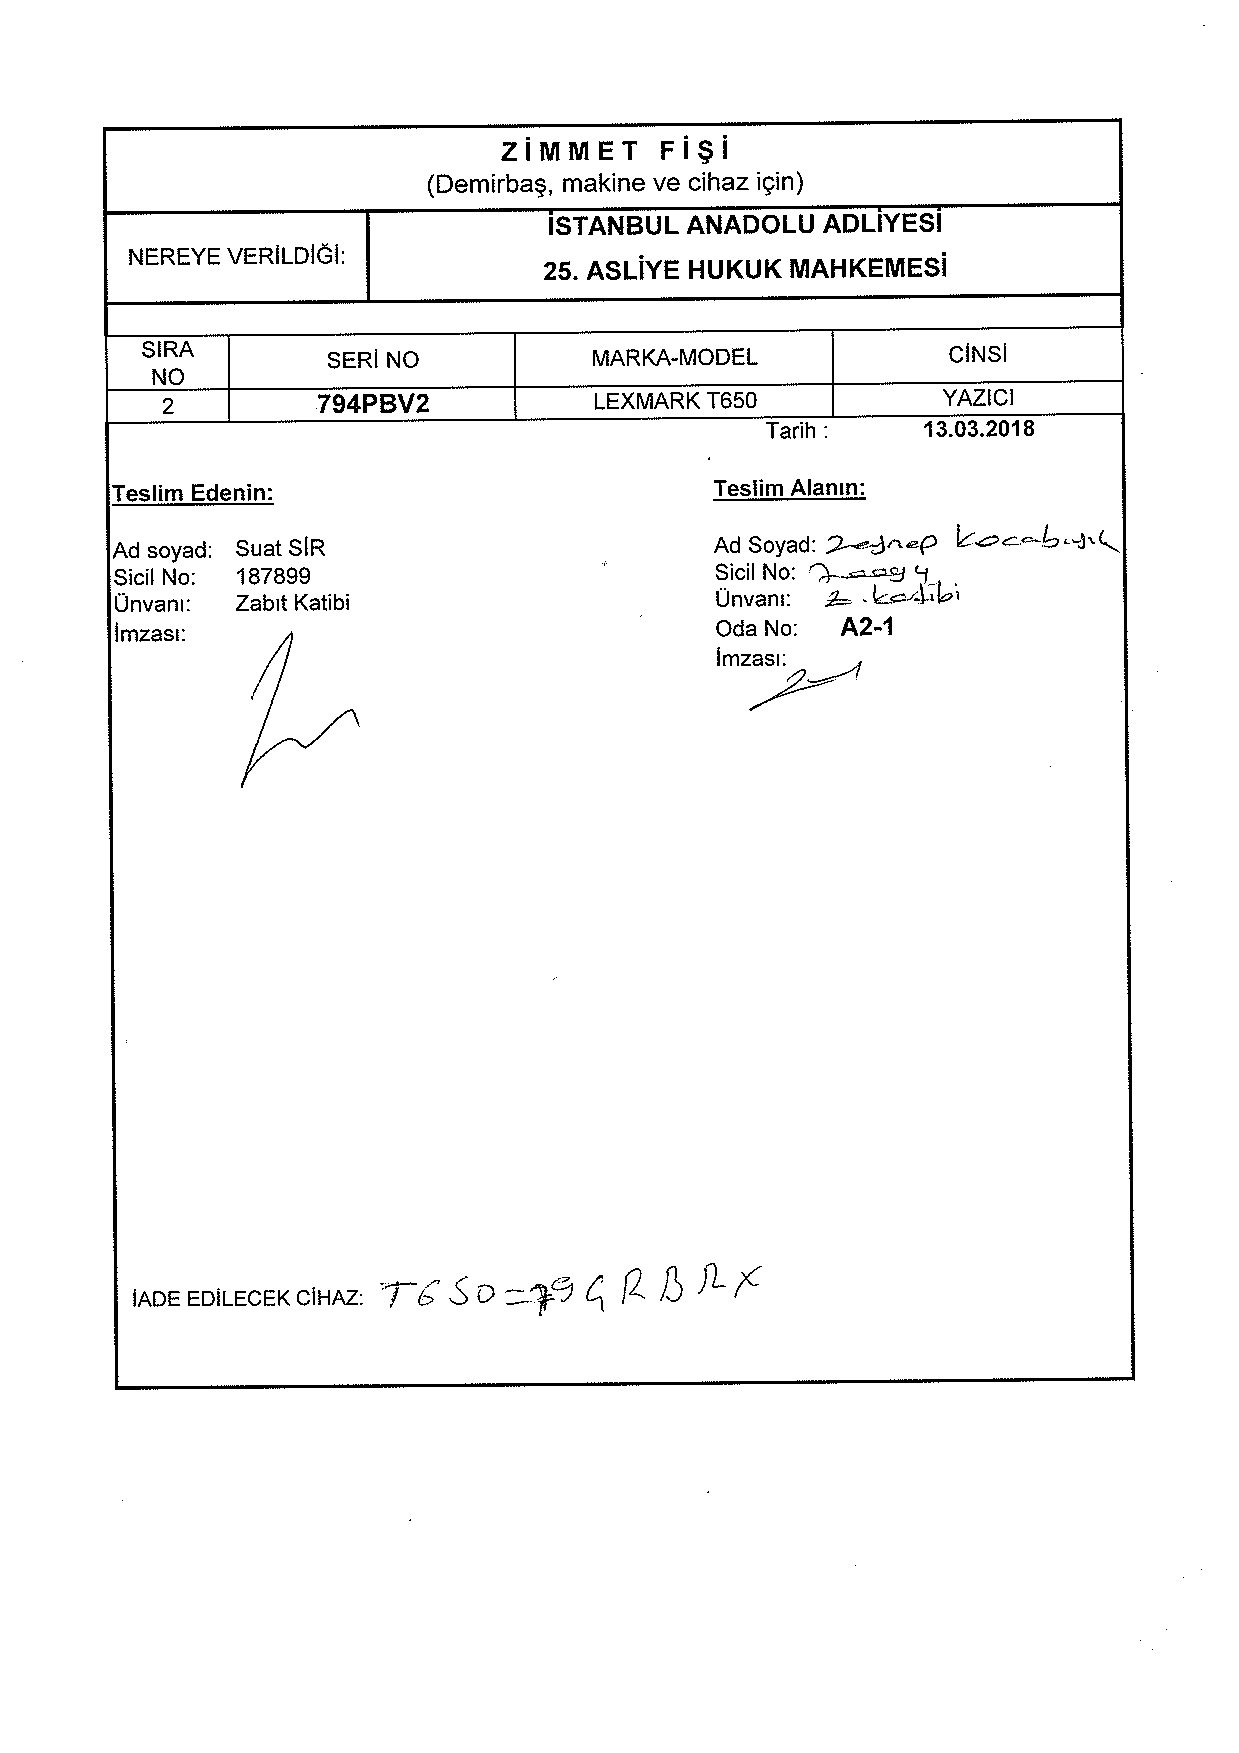 ZİMMET FİŞİ
(Demirbaş, makine ve cihaz için)
NEREYE VERİLDİĞİ:
İSTANBUL ANADOLU ADLİYESİ
25. ASLİYE HUKUK MAHKEMESİ
SIRA NO SERİ NO MARKA-MODEL CİNSİ
2 794PBV2 LEXMARK T650 YAZICI
Tarih : 13.03.2018
Teslim Edenin:
Ad soyad: Suat SİR
Sicil No: 187899
Ünvanı: Zabıt Katibi
İmzası:
Teslim Alanın:
Ad Soyad: Zeynep Kocabıyık
Sicil No:
Ünvanı: Z. Katibi
Oda No: A2-1
İmzası:
İADE EDİLECEK CİHAZ: T650=